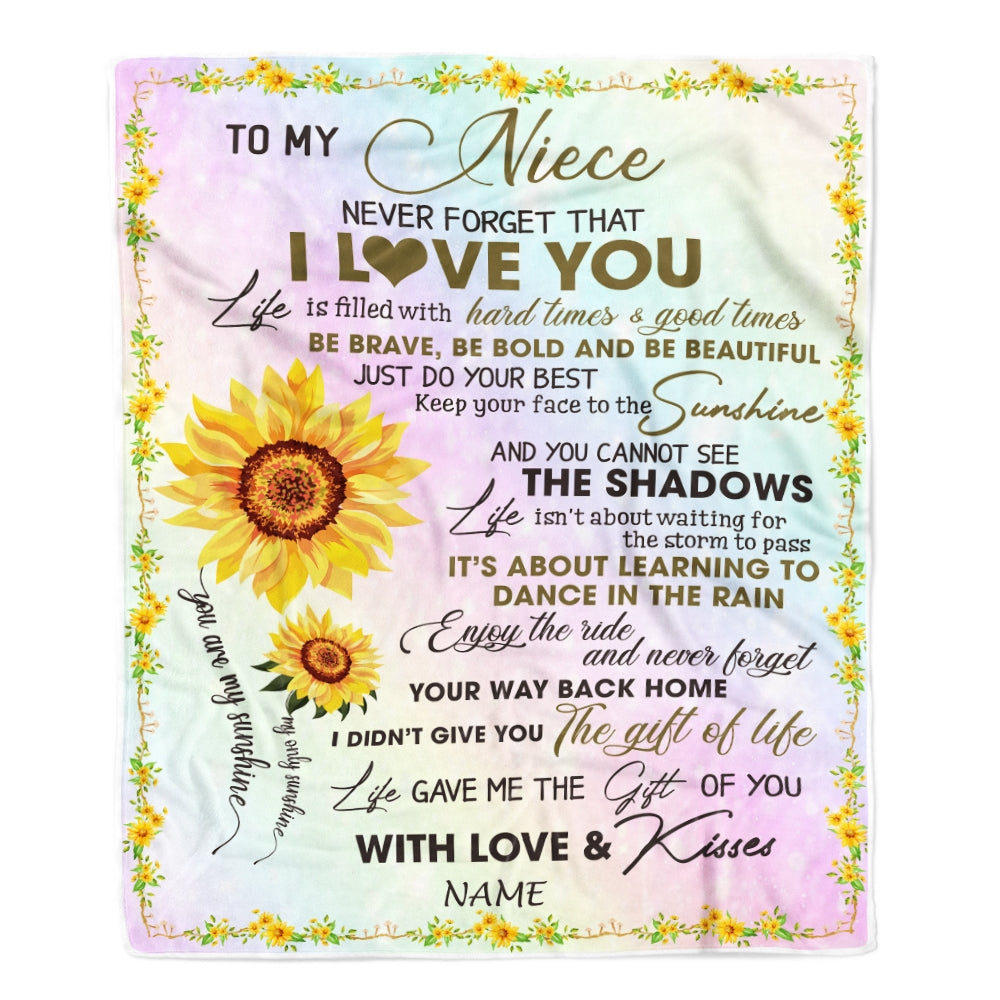 TO MY Niece
NEVER FORGET THAT
I LOVE YOU
Life is filled with hard times & good times
BE BRAVE, BE BOLD AND BE BEAUTIFUL
JUST DO YOUR BEST
Keep your face to the Sunshine
AND YOU CANNOT SEE
THE SHADOWS
Life isn't about waiting for
the storm to pass
IT'S ABOUT LEARNING TO
DANCE IN THE RAIN
Enjoy the ride
and never forget
YOUR WAY BACK HOME
I DIDN'T GIVE YOU The gift of life
Life GAVE ME THE Gift OF YOU
WITH LOVE & Kisses
NAME
You are my sunshine
my only sunshine